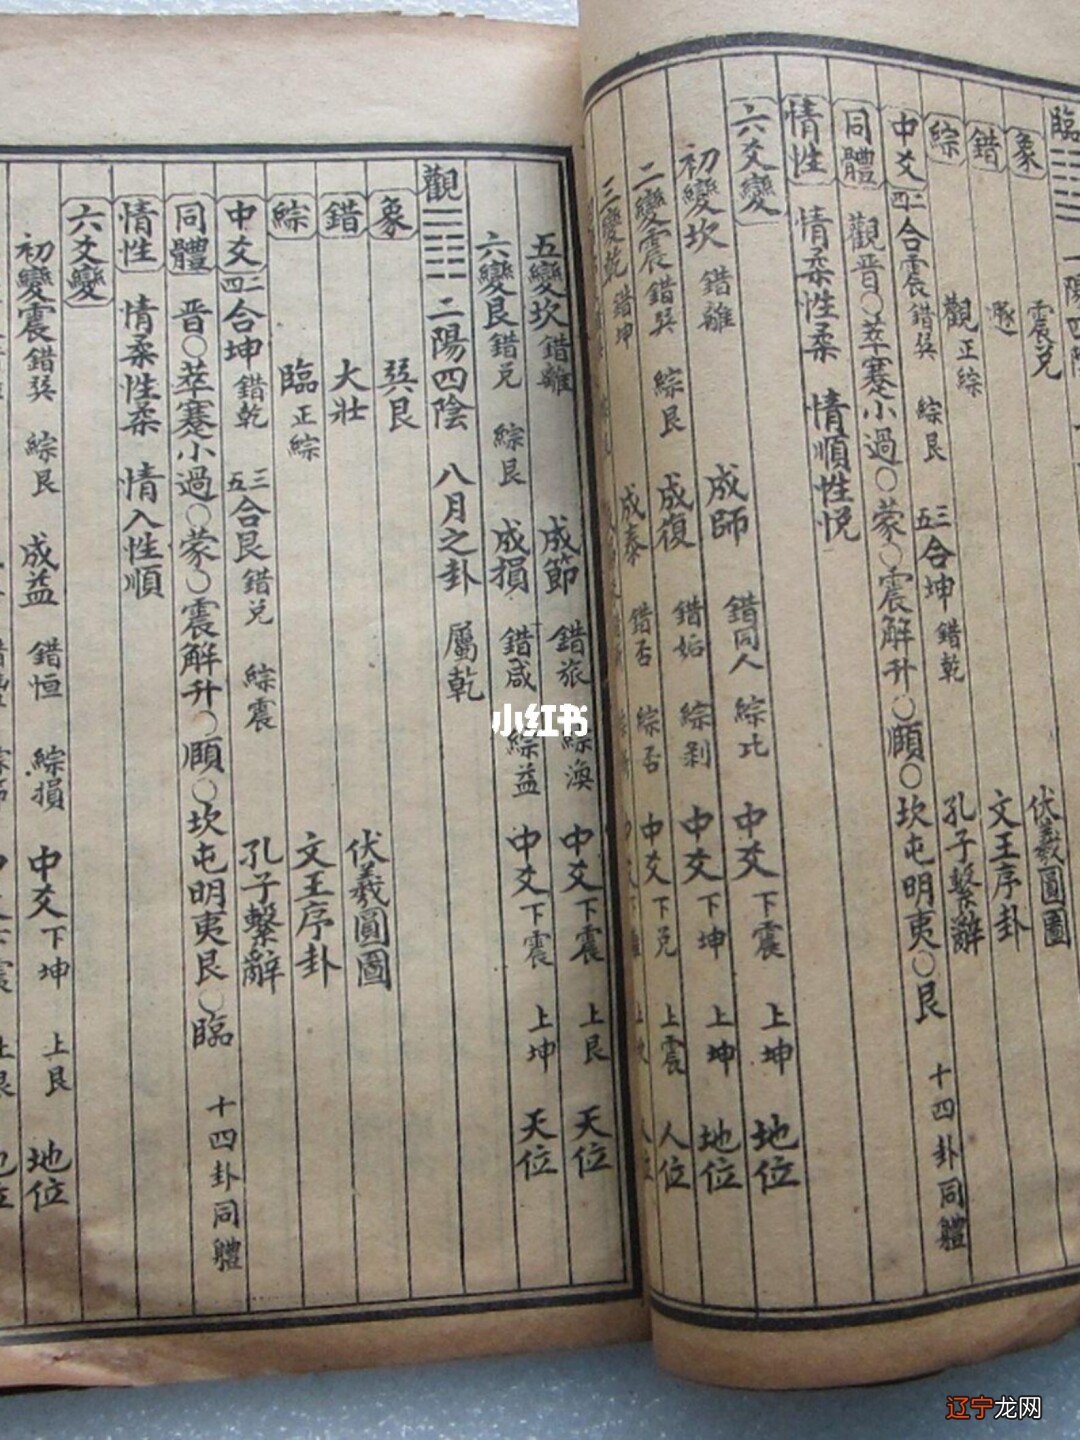 臨 二陽四陰
象 震兌 伏羲圓圖
錯 遯 文王序卦
綜 觀正綜 孔子繫辭
中爻 二四合震錯巽 綜艮 三五合坤錯乾
同體 觀晉○萃蹇小過○蒙○震解升○頤○坎屯明夷○艮 十四卦同體
情性 情柔性柔 情順性悅
六爻變
初變坎錯離 成師 錯同人 綜比 中爻下震 上坤 地位
二變震錯巽 綜艮 成復 錯姤 綜剥 中爻下坤 上坤 地位
三變乾錯坤 成泰 錯否 綜否 中爻下兌 上震 人位
五變坎錯離 成節 錯旅 綜渙 中爻下震 上艮 天位
六變艮錯兌 綜艮 成損 錯咸 綜益 中爻下震 上坤 天位
觀 二陽四陰 八月之卦 屬乾
象 巽艮 伏羲圓圖
錯 大壯 文王序卦
綜 臨正綜 孔子繫辭
中爻 二四合坤錯乾 三五合艮錯兌 綜震
同體 晉○萃蹇小過○蒙○震解升○頤○坎屯明夷艮○臨 十四卦同體
情性 情柔性柔 情入性順
六爻變
初變震錯巽 綜艮 成益 錯恒 綜損 中爻下坤 上艮 地位
小红书
辽宁龙网